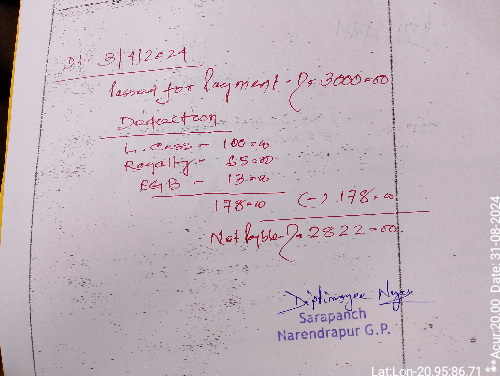 Dt- 3/1/2024
Passed for Payment - Rs. 3000=00
Deduction
L. Cess - 100=00
Royalty - 65=00
EGB - 13=00
178=00 (-) 178=00
Net Payble - Rs. 2822=00
Diptimayee Nayak
Sarapanch
Narendrapur G.P.
Lat:Lon-20.95:86.71 ***Acur:20.00 Date: 31-08-2024